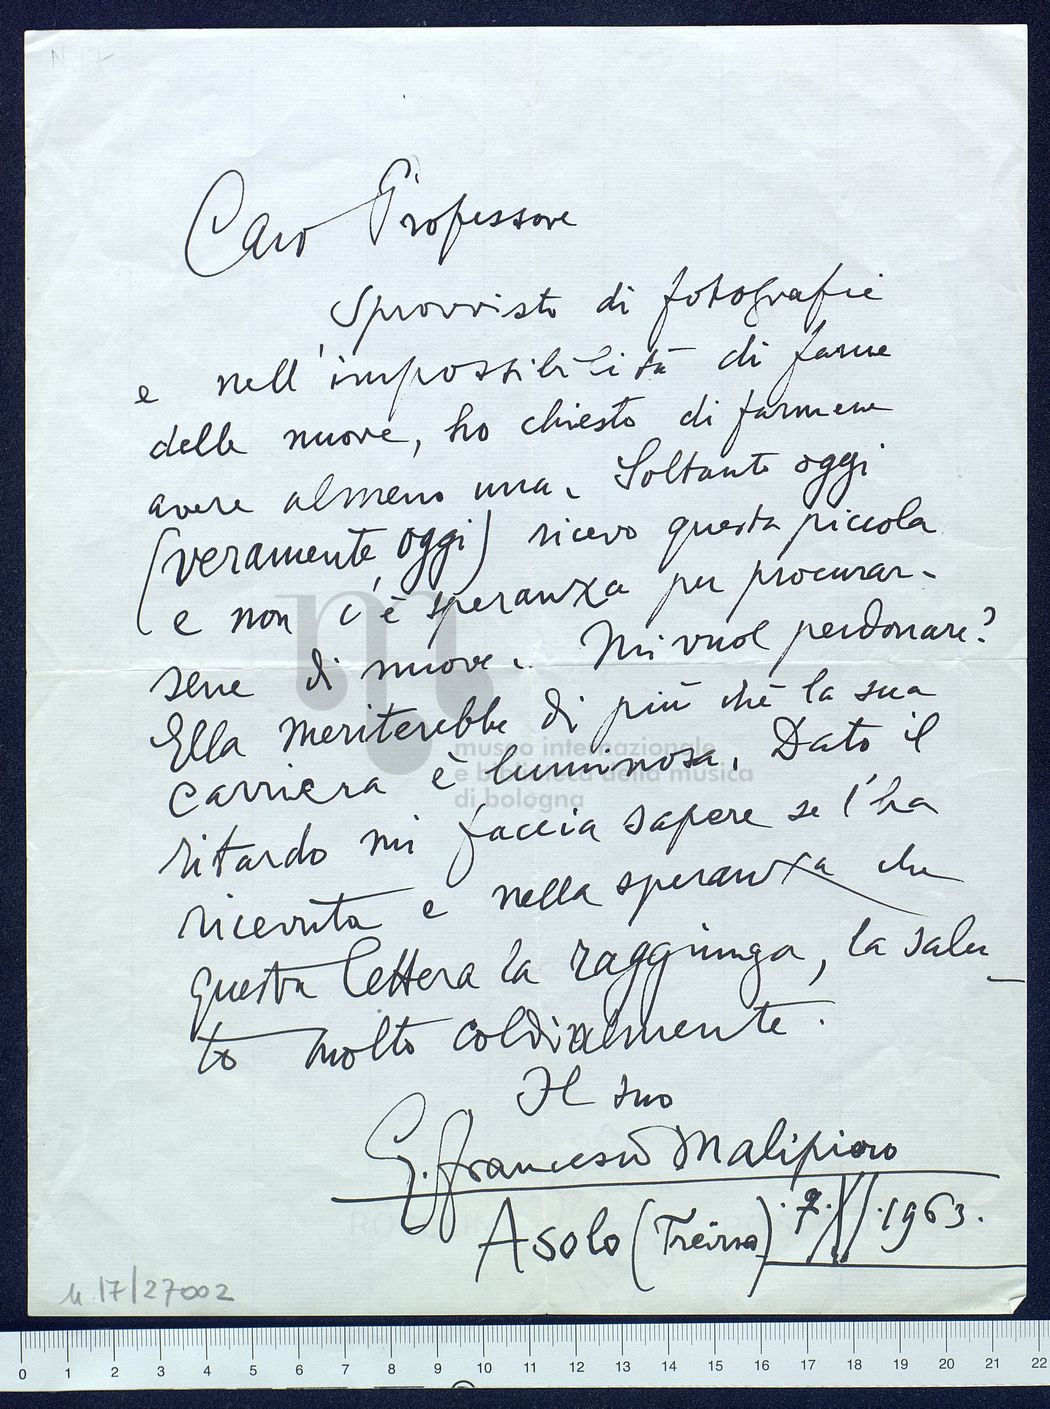 N 17
Caro Professore
Sprovvisto di fotografie
e nell'impossibilità di farne
delle nuove, ho chiesto di farmene
avere almeno una. Soltanto oggi
(veramente oggi) ricevo questa piccola
e non c'è speranza per procurar-
sene di nuove. Mi vuol perdonare?
Ella meriterebbe di più chè la sua
carriera è luminosa. Dato il
ritardo mi faccia sapere se l'ha
ricevuta e nella speranza che
questa lettera la raggiunga, la salu_
to molto coldialmente.
Il suo
G. Francesco Malipiero
Asolo (Treviso) 1963.
museo internazionale
e biblioteca della musica
di bologna
17/27002
0 1 2 3 4 5 6 7 8 9 10 11 12 13 14 15 16 17 18 19 20 21 22